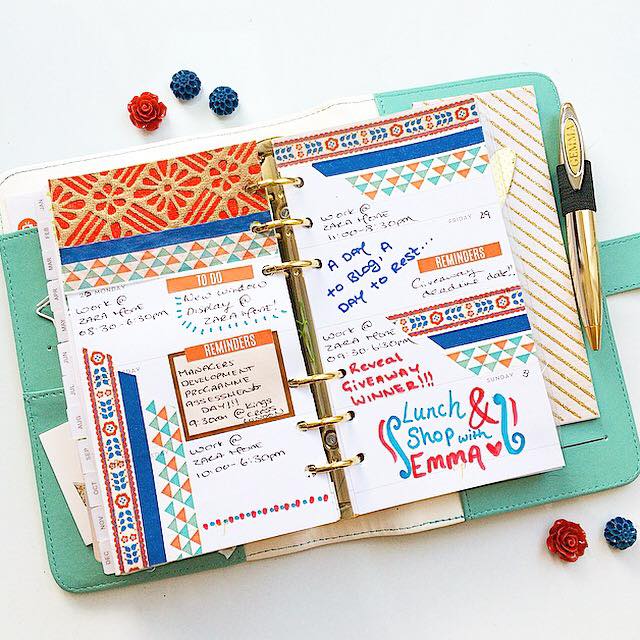 JAN
FEB
MAR
APR
JUL
AUG
SEP
OCT
NOV
DEC
MONDAY
WORK @
ZARA HOME
08:30 - 6:30pm
TO DO
NEW WINDOW
DISPLAY @
ZARA HOME!
REMINDERS
MANAGERS
DEVELOPMENT
PROGRAMME
ASSESSMENT
DAY!!!
9:30am @ Kings
CROSS
WORK @
ZARA HOME
10:00 - 6:30pm
WORK @
ZARA HOME
11:00 - 8:30pm
FRIDAY 29
A DAY
to BLOG, A
DAY to REST...
REMINDERS
Giveaway
deadline date!!
WORK @
ZARA HOME
09:30 - 6:30pm
REVEAL
GIVEAWAY
WINNER!!!
SUNDAY 31
Lunch &
Shop with
EMMA
GEMMA